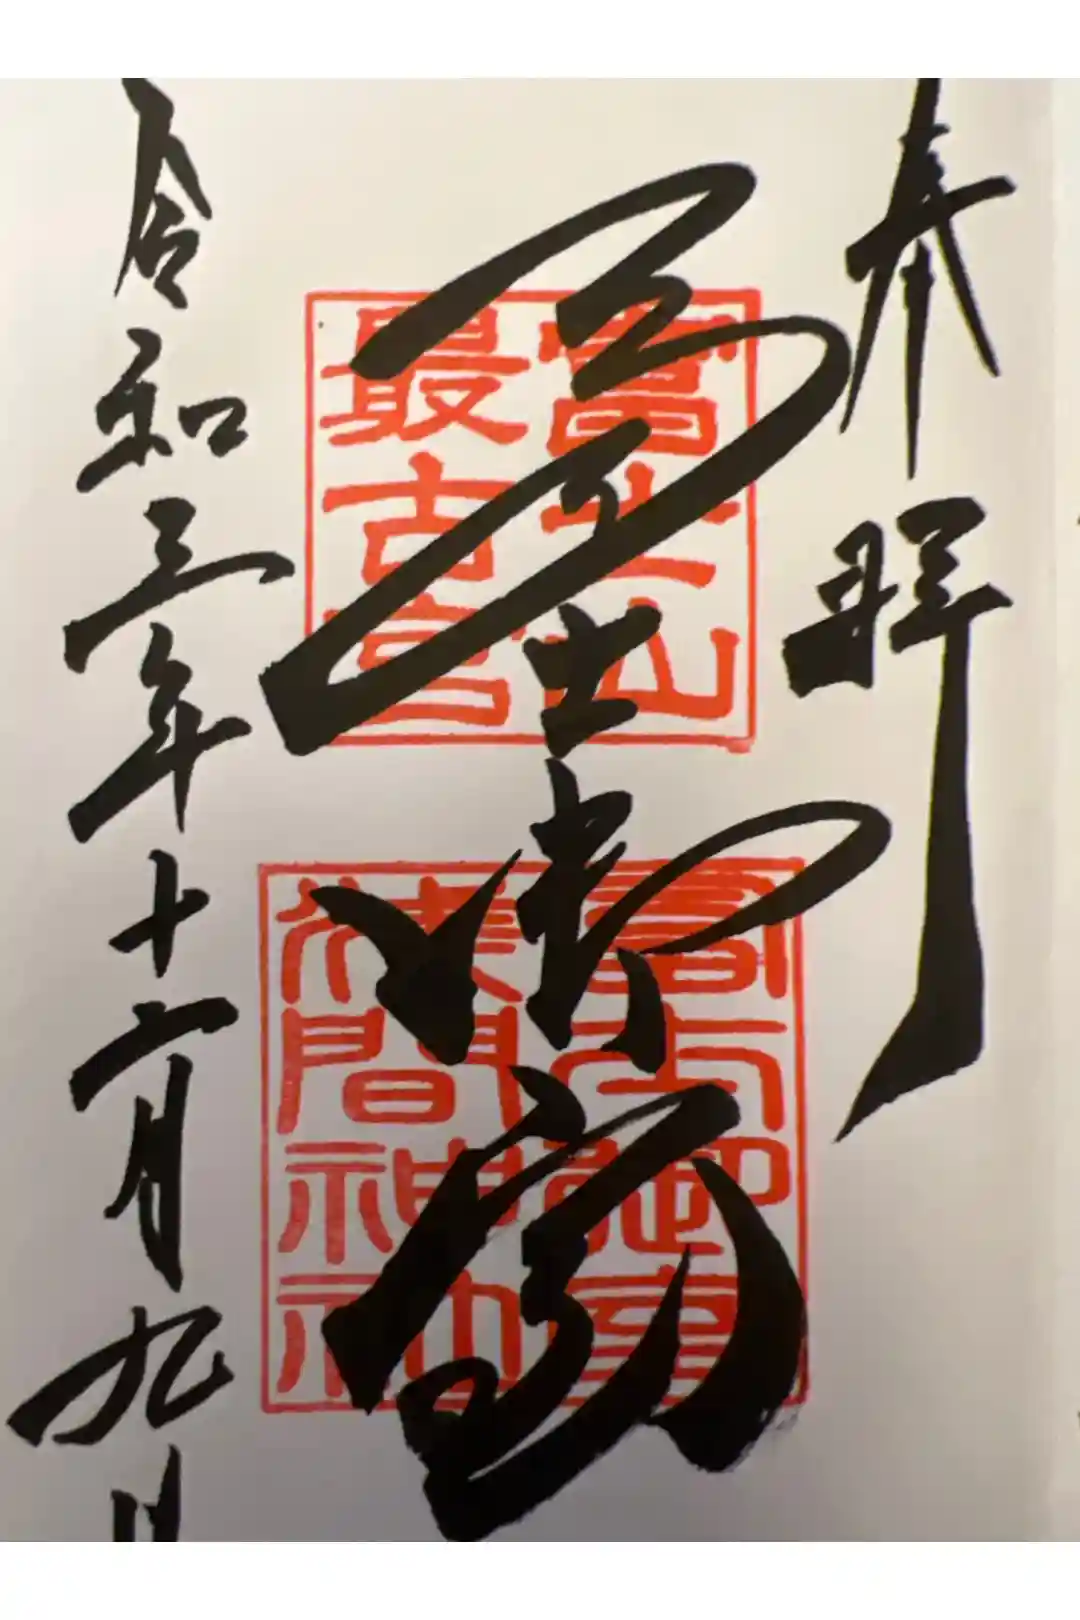 奉拝
富士山
最古宮
冨士御室
富士御室
浅間神社
令和三年十二月九日